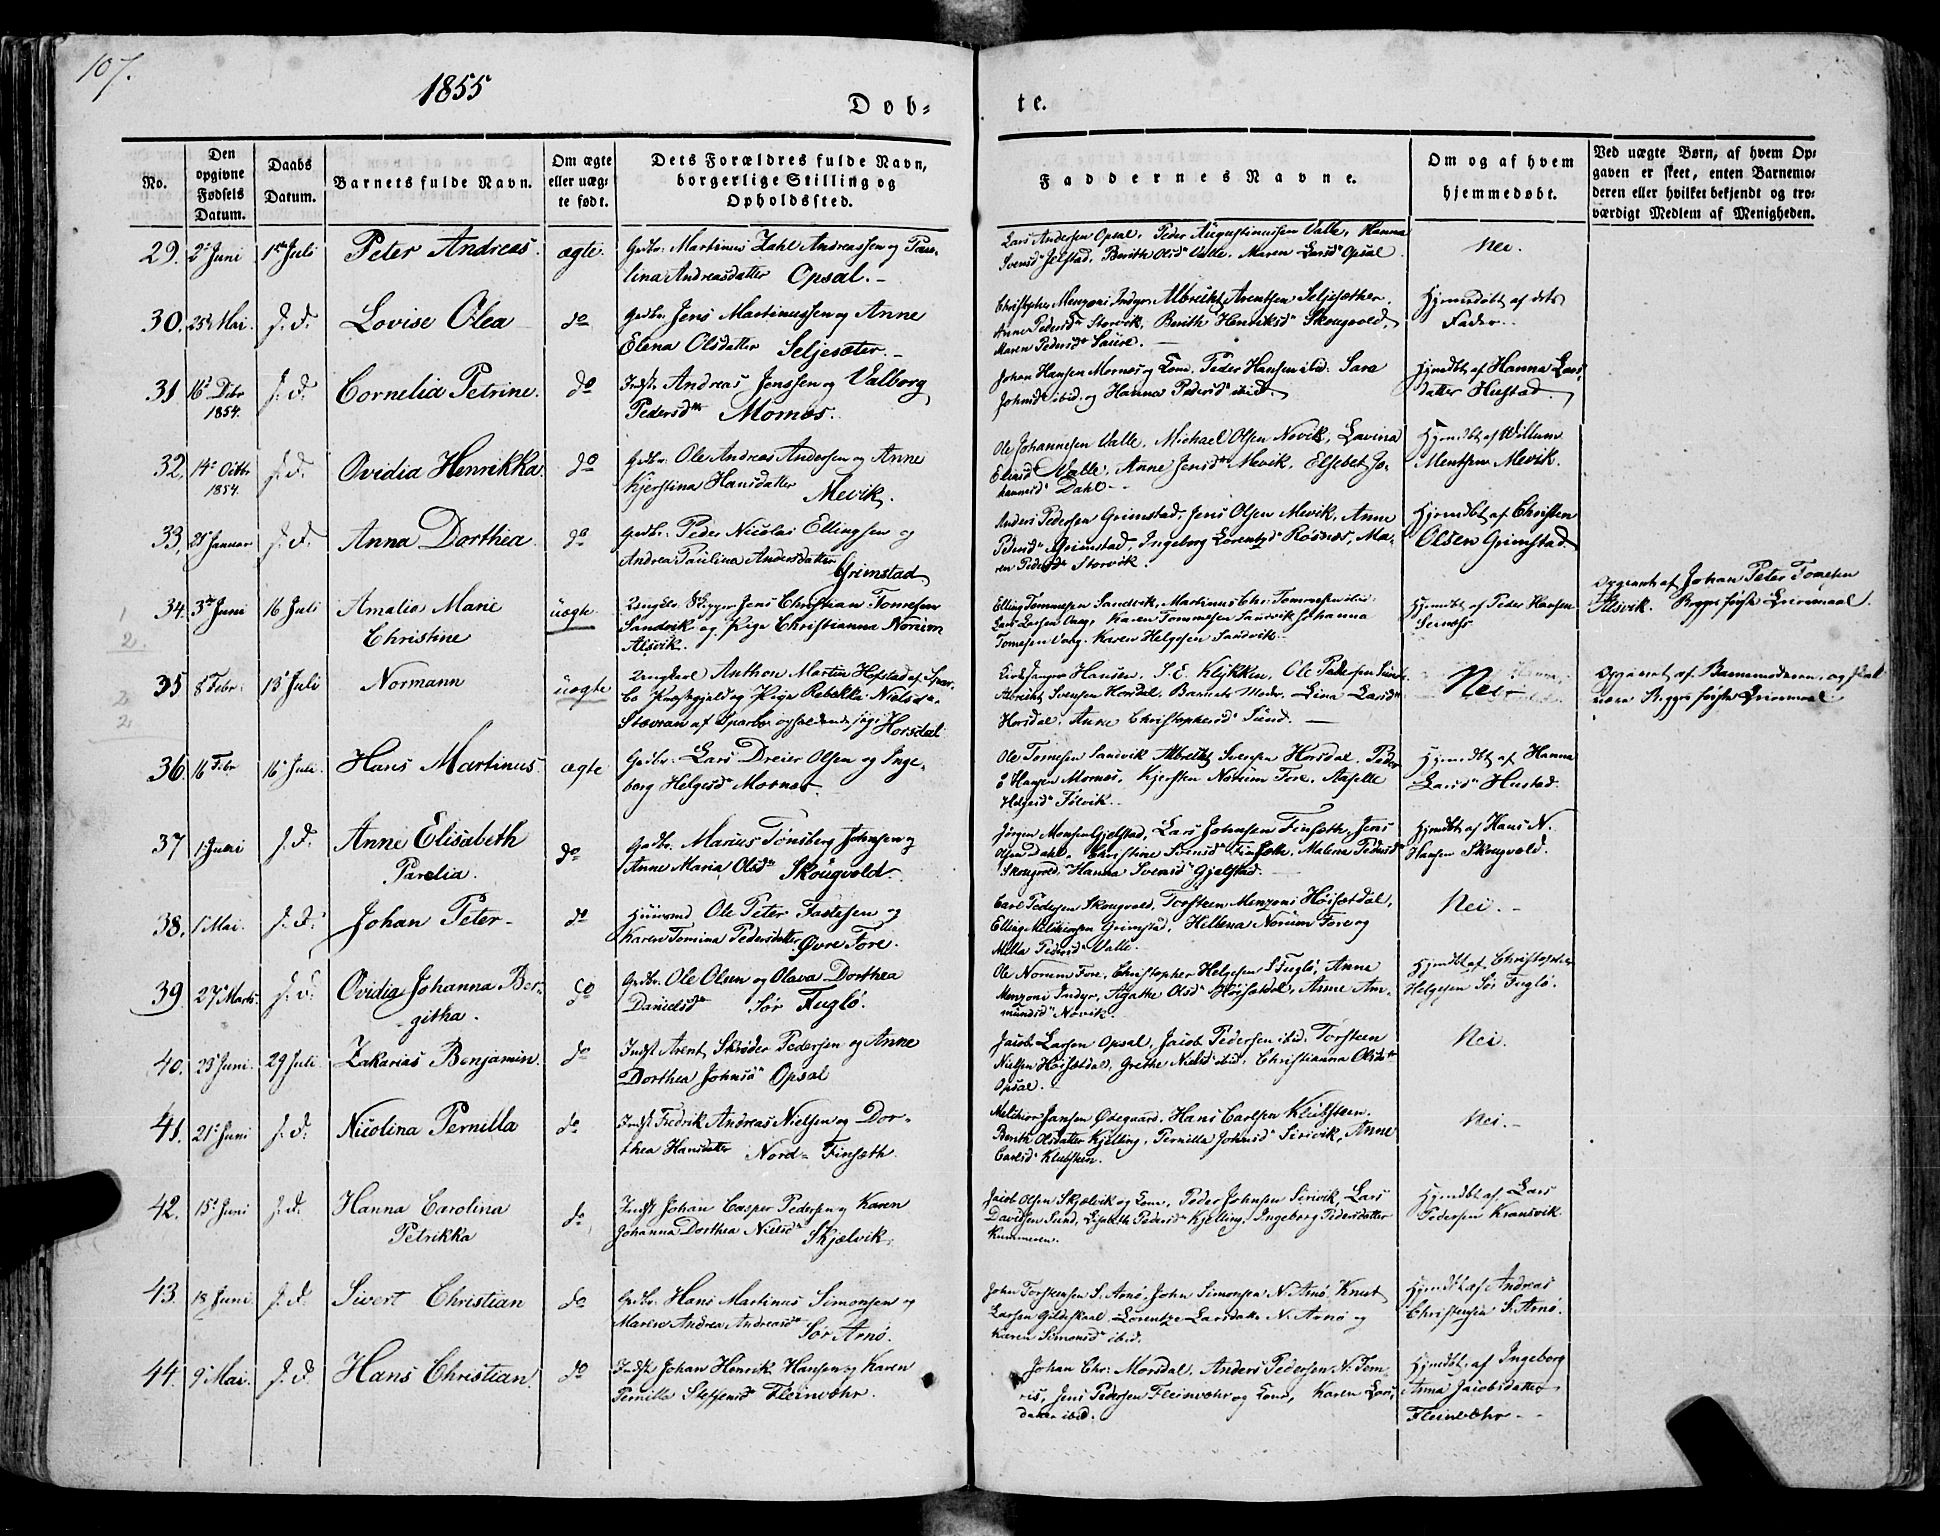 107.
1855
Døb-
te.
No.
Den opgivne Fødsels Datum.
Daabs Datum.
Barnets fulde Navn.
Om ægte eller uægte født.
Dets Forældres fulde Navn, borgerlige Stilling og Opholdssted.
Faddernes Navne.
Om og af hvem hjemmedøbt.
Ved uægte Børn, af hvem Opgaven er skeet, enten Barnemoderen eller hvilket bekjendt og troværdigt Medlem af Menigheden.
29. 2den Juni 1ste Juli Peter Andreas. ægte. Grdbr. Martinus Zahl Andreassen og Pau-
lina Andreasdatter Opsal.
Lars Andersen Opsal, Peder Augustinussen Valle, Hanna
Svensd. Jelstad, Berith Olsd. Valle, Maren Larsd. Opsal.
Nei.
30. 25de Mai. s. d. Lovise Olea do Grdbr. Jens Martinussen og Anne
Elena Olsdatter Seljesæter.
Christopher Menzoni Indyr, Albrikt Arentsen Seljesæther.
Anne Pedersd. Storvik, Berith Henriksd. Skougvold,
Maren Pedersd. Saure.
Hjemdøbt af dets
Fader.
31 16de Decbr 1854. s. d. Cornelia Petrine. do Indst. Andreas Jenssen og Valborg
Pedersdtr Mornes.
Johan Hansen Mornes og Kone, Peder Hansen ibid. Sara
Johnsd. ibid. og Hanna Pedersd. ibid.
Hjemdbt af Hanna Lars-
datter Hustad.
32. 14de Octbr 1854. s. d. Ovidia Henrikka. do Grdbr. Ole Andreas Andersen og Anne
Kjerstina Hansdatter Mevik.
Ole Johannesen Valle, Michael Olsen Novik, Lavina
Elvisd. Valle, Anne Jensdtr Mevik, Elsebet Jo-
hannesd. Dahl.
Hjemdbt af Willum
Mentsen Mevik.
33. 21de Januar s. d. Anna Dorthea. do Grdbr. Peder Nicolai Ellingsen og
Andrea Paulina Andersdatter Grimstad.
Anders Pedersen Grimstad, Jens Olsen Mevik, Anne
Pedersd. Grimstad, Ingeborg Lorentzd. Rosnes, Ma-
ren Pedersd. Storvik.
Hjemdbt af Christen
Olsen Grimstad.
34. 3die Juni 16 Juli Amalia Marie
Christine
uægte Ungkarl Jens Christian Tomesen
Sandvik og Pige Christianna Norum
Alsvik.
Elling Tommesen Sandvik, Martinus Chr. Tommesen ibid.
Lars Larsen Vaag, Karen Tommesen Sandvik Johanna
Tomesen Vaag, Karen Helgesen Sandvik.
Hjemdbt af Peder Hansen
Opgivet af Johan Peter Tomesen
Alsvik. Begges første Leiermaal.
35 8 Febr. 15 Juli Normann uægte Ungkarl Anthon Martin Hofstad af Spar-
bo Præstegjeld og Pige Rebekka Nielsdtr
af Sparbo opholdende sig i Horsdal
Hansen, J. E. Klykken, Ole Pedersen Sund,
Albrikt Svensen Horsdal, Barnets Moder, Lina Larsdtr
Horsdal, Anne Christophersd. Sund.
Nei
Opgivet af Barnemoderen, og skal
være Begges første Leiermaal
36. 16 Febr 16 Juli. Hans Martinus ægte Grdbr. Lars Dreier Olsen og Inge-
borg Helgesd. Mornes.
Ole Tomesen Sandvik Albrikt Svensen Horsdal, Peder
Hansen Mornes, Kjersten Norum Fore, Aaselle
Helgesd. Solvik.
Hjemdbt af Hanna
Larsd. Hustad.
37 1 Juni s. d. Anne Elisabeth
Parelia.
do Grdbr. Marius Tønsberg Johnsen og
Anne Maria Olsd. Skougvold.
Jørgen Monsen Gjelstad, Lars Johnsen Finsæth, Jens
Olsen Dahl, Christine Svensd. Finsæth, Malena Pedersd.
Skougvold, Hanna Svensd. Gjelstad.
Hjemdbt af Hans N.
Hansen Skougvold.
38. 1 Mai. s. d. Johan Peter do Huusmd Ole Peter Fastesen og
Karen Tomina Pedersdatter Øvre Fore.
Carl Pedersen Skougvold, Torsteen Menzoni Høisetdal,
Elling Grimstad, Hellena Norum Fore og
Milla Pedersd. Valle.
Nei.
39. 27 Marts. s. d. Ovidia Johanna Ber-
githa.
do Grdbr. Ole Olsen og Olava Dorthea
Danielsd. Sør Fuglø.
Ole Norum Fore, Christopher Helgesen S. Fuglø, Anne
Menzoni Indyr, Agathe Olsd. Høisetdal, Anne Am-
mundsd. Novik.
Hjemdbt af Christopher
Helgesen Sør Fuglø.
40. 25 Juni. 29 Juli. Zakarias Benjamin. do Indst. Arent Skrøder Pedersen og Anne
Dorthea Johnsd. Opsal
Jakob Larsen Opsal, Jacob Pedersen ibid, Torsteen
Nielsen Høisetdal, Grethe Nielsd. ibid. Christianna Olsdtr
Opsal.
Nei.
41. 21de Juni s. d. Nicolina Pernilla do Indst Fredrik Andreas Nielsen og Dor-
thea Hansdatter Nord-Finsæth.
Melchior Jansen Ødegaard, Hans Carlsen Klubsteen,
Berith Olsdatter Kjelling, Pernilla Johnsd. Sirivik, Anne
Carlsd. Klubsteen.
Nei.
42. 15de Juni s. d. Hanna Carolina
Petrikka
do Indst Johan Casper Pedersen og Karen
Johanna Dorthea Nielsd. Skjelvik.
Jacob Olsen Skjelvik og Kone, Peder Johnsen Sirivik, Lars
Davidsen Sund, Elisabeth Pedersd. Kjelling, Ingeborg Pedersdatter
Hjemdbt af Lars
Pedersen Kransvik.
43. 18 Juni. s. d. Sivert Christian do Grdbr. Hans Martinus Simonsen og
Maren Andrea Andreasd. Sør Arnø.
John Torstensen S. Arnø, John Simonsen N. Arnø, Knut
Larsen Gildeskaal, Lorentze Larsdatter N. Arnø og
Karen Simonsd. ibid.
Hjemdbt af Andreas
Christensen S. Arnø.
44. 9 Mai. s. d. Hans Christian. do Indst Johan Henrik Hansen og Karen
Pernilla Steffensd. Fleinvær.
Johan Chr. Morsdal, Anders Pedersen N. Tom-
ris, Jens Pedersen Fleinvær og Kone, Karen Lars-
datter ibid.
Hjemdbt af Ingeborg
Anna Jacobsdatter
Fleinvær.